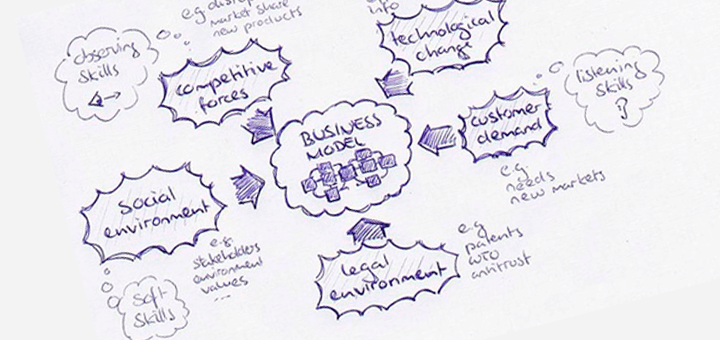 e.g. disrup
market share
new products
info
technological
change
observing
skills
competitive
forces
listening
skills
customer
demand
BUSINESS
MODEL
e.g.
needs
new markets
social
environment
e.g.
stakeholders
environment
values
...
legal
environment
e.g.
patents
WTO
antitrust
soft
skills